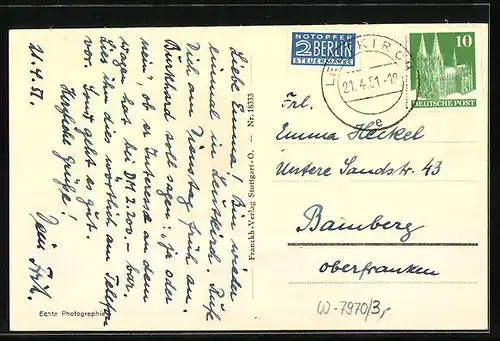 21.4.51.
Liebe Emma! Bin wieder
einmal in Leutkirch. Rufe
Dich am Dienstag früh an.
Burkhard soll sagen: „ja oder
nein“, ob er Interesse an dem
wagen hat bei DM 2.200.- bar.
Lies ihm dies wörtlich am Telefon
vor. Sonst geht es gut.
Herzliche Grüße!
Dein
Echte Photographie
Franckh-Verlag Stuttgart-O. — Nr. 18333
NOTOPFER
2 BERLIN
STEUERMARKE
LEUTKIRCH
21.4.51.-12
e
10
DEUTSCHE POST
Frl.
Emma Heckel
Untere Sandstr. 43
Bamberg
Oberfranken
W-7970/3,-